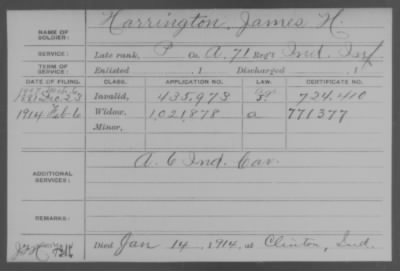 NAME OF SOLDIER: Harrington, James H.
SERVICE: Late rank, P Co. A, 71 Reg't Ind. Inf.
TERM OF SERVICE: Enlisted , 1 Discharged , 1
DATE OF FILING. CLASS. APPLICATION NO. LAW. CERTIFICATE NO.
1881 Dec. 23 Invalid, 435,973 724,410
1914 Feb 6 Widow, 1,021,878 a 771377
Minor,
ADDITIONAL SERVICES: A. 6 Ind. Cav.
REMARKS:
Died Jan 14, 1914, at Clinton, Ind.